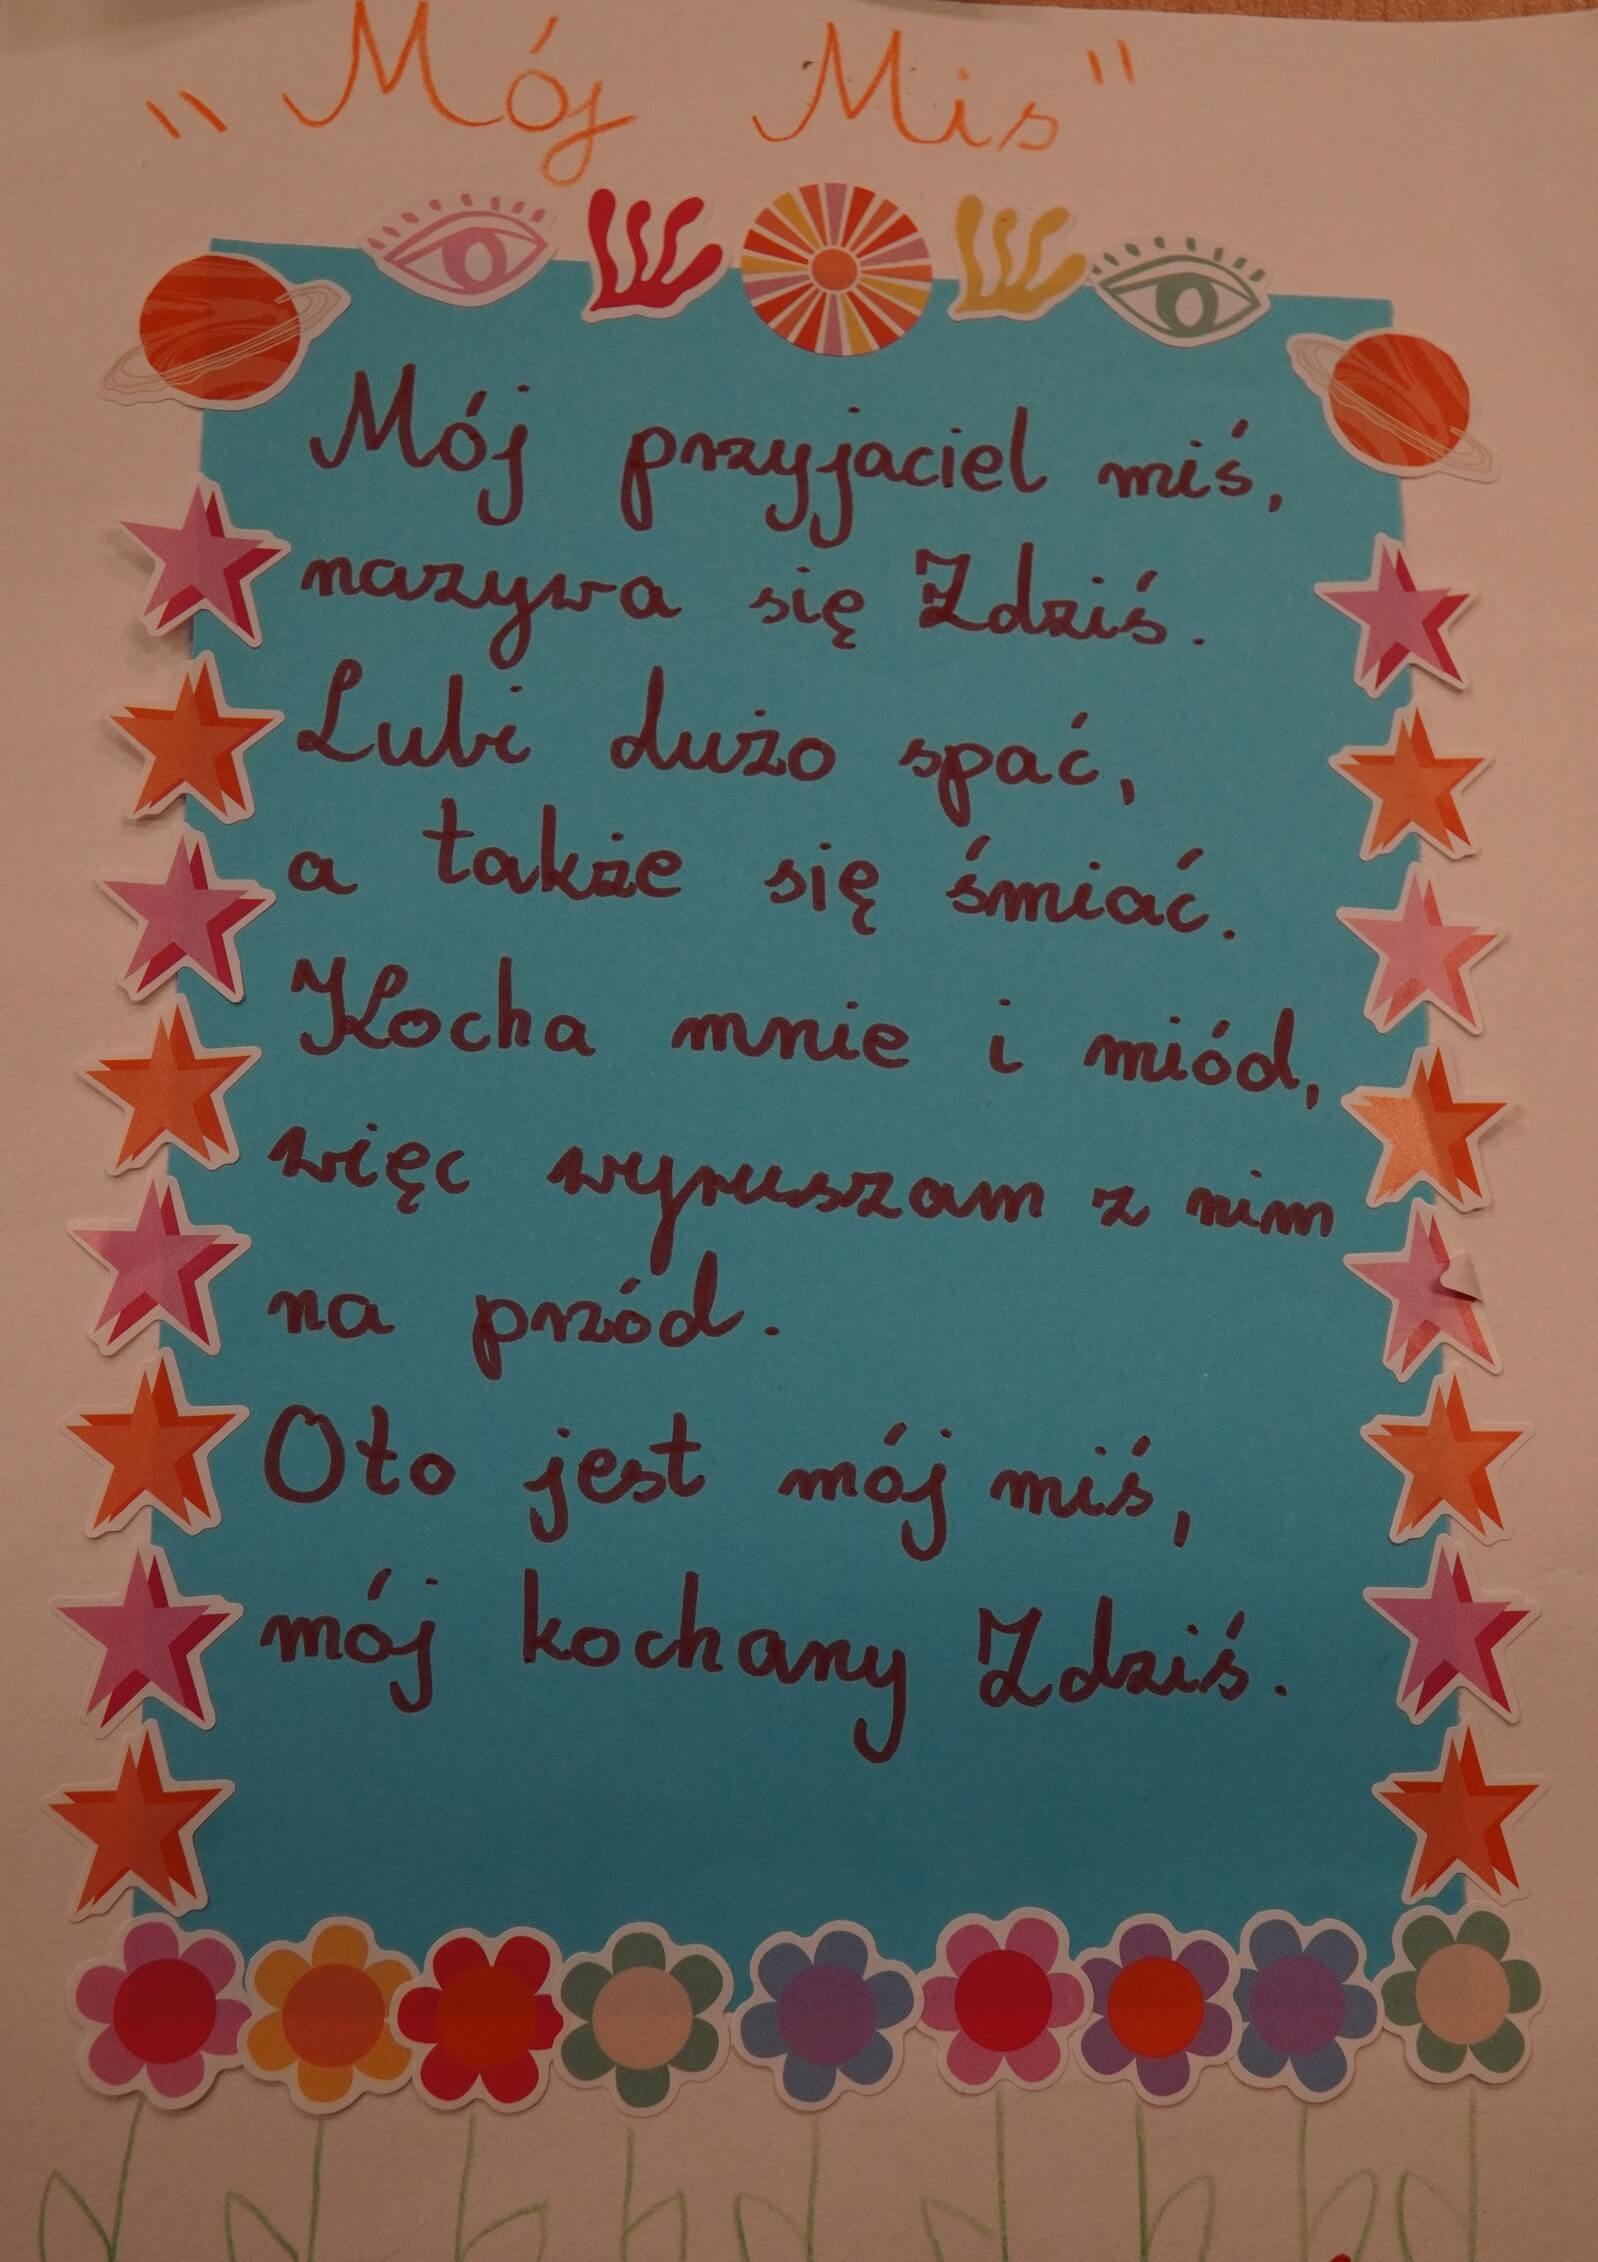 „Mój Mis"
Mój przyjaciel miś,
nazywa się Zdziś.
Lubi dużo spać,
a także się śmiać.
Kocha mnie i miód,
więc wyruszam z nim
na przód.
Oto jest mój miś,
mój kochany Zdziś.